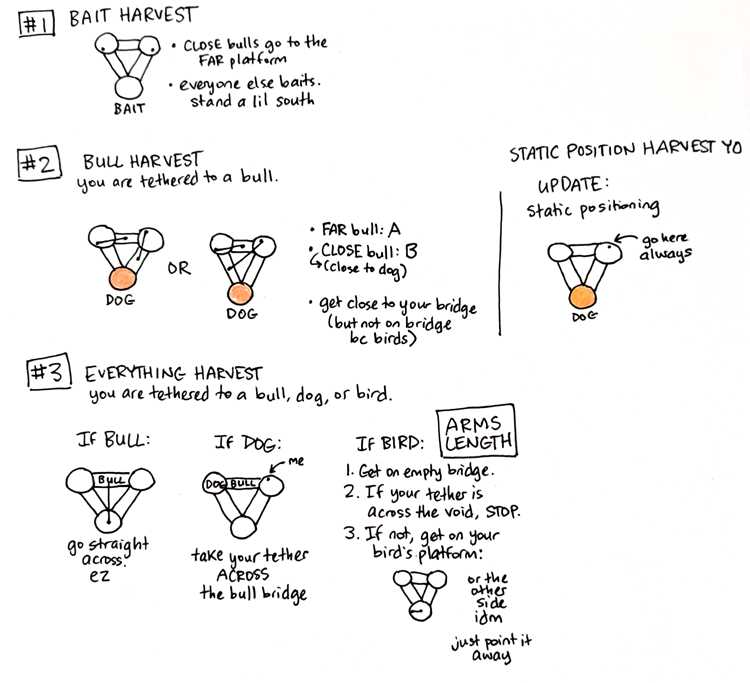 #1 BAIT HARVEST
• CLOSE bulls go to the
FAR platform
• everyone else baits.
stand a lil south
BAIT
#2 BULL HARVEST
you are tethered to a bull.
DOG
OR
DOG
• FAR bull: A
• CLOSE bull: B
↳(close to dog)
• get close to your bridge
(but not on bridge
bc birds)
STATIC POSITION HARVEST YO
UPDATE:
static positioning
go here
always
DOG
#3 EVERYTHING HARVEST
you are tethered to a bull, dog, or bird.
IF BULL:
BULL
go straight
across.
ez
IF DOG:
me
DOG BULL
take your tether
ACROSS
the bull bridge
IF BIRD:
ARMS
LENGTH
1. Get on empty bridge.
2. If your tether is
across the void, STOP.
3. If not, get on your
bird's platform:
or the
other
side
idm
just point it
away